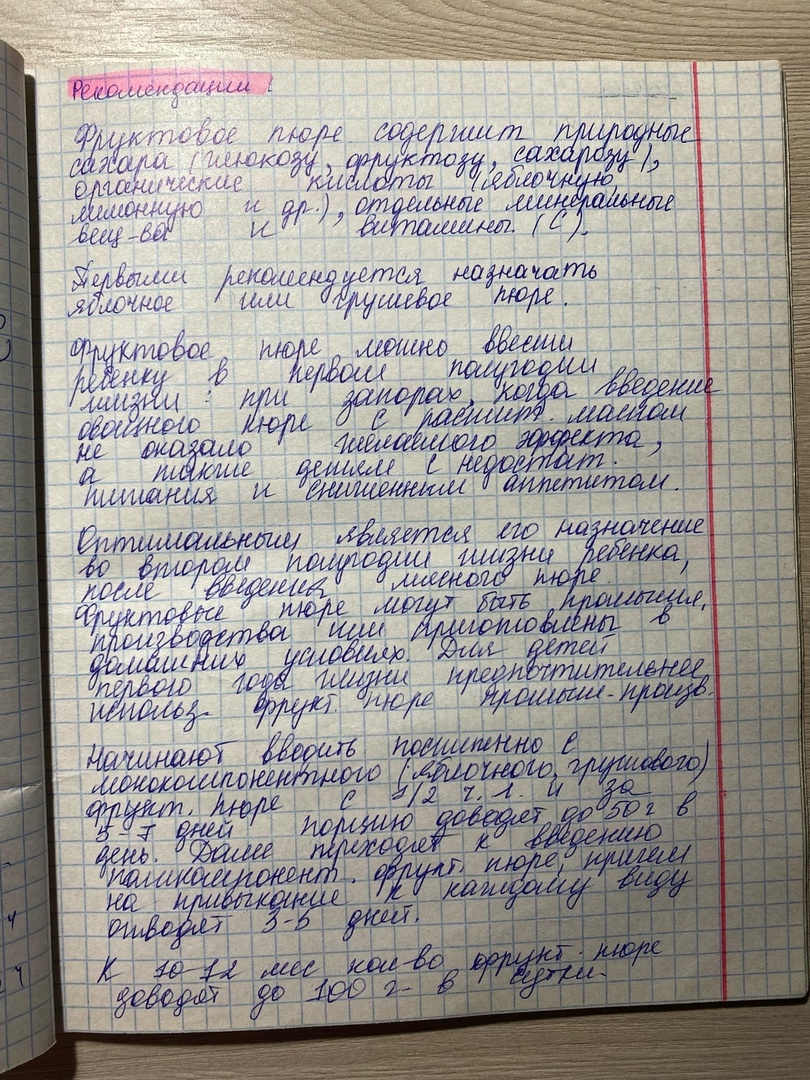 Рекомендации:
Фруктовое пюре содержит природные
сахара (глюкозу, фруктозу, сахарозу),
органические кислоты (яблочную,
лимонную и др.), отдельные минеральные
вещ-ва и витамины. (С).
Первыми рекомендуется назначать
яблочное или грушевое пюре.
Фруктовое пюре можно ввести
ребенку в первом полугодии
жизни: при запорах, когда введение
овощного пюре с растит. маслом
не оказало желаемого эффекта,
а также детям с недостат.
питания и сниженным аппетитом.
Оптимальным является его назначение
во втором полугодии жизни ребенка,
после введения мясного пюре.
Фруктовые пюре могут быть промышл.
производства или приготовлены в
домашних условиях. Для детей
первого года жизни предпочтительнее
использ. фрукт. пюре промышл-произв.
Начинают вводить постепенно с
монокомпонентного (яблочного, грушевого)
фрукт. пюре с 1/2 ч. л. и за
5-7 дней порцию доводят до 50 г в
день. Далее переходят к введению
поликомпонент. фрукт. пюре, причем
на привыкание к каждому виду
отводят 3-5 дней.
К 10-12 мес кол-во фрукт. пюре
доводят до 100 г. в сутки.